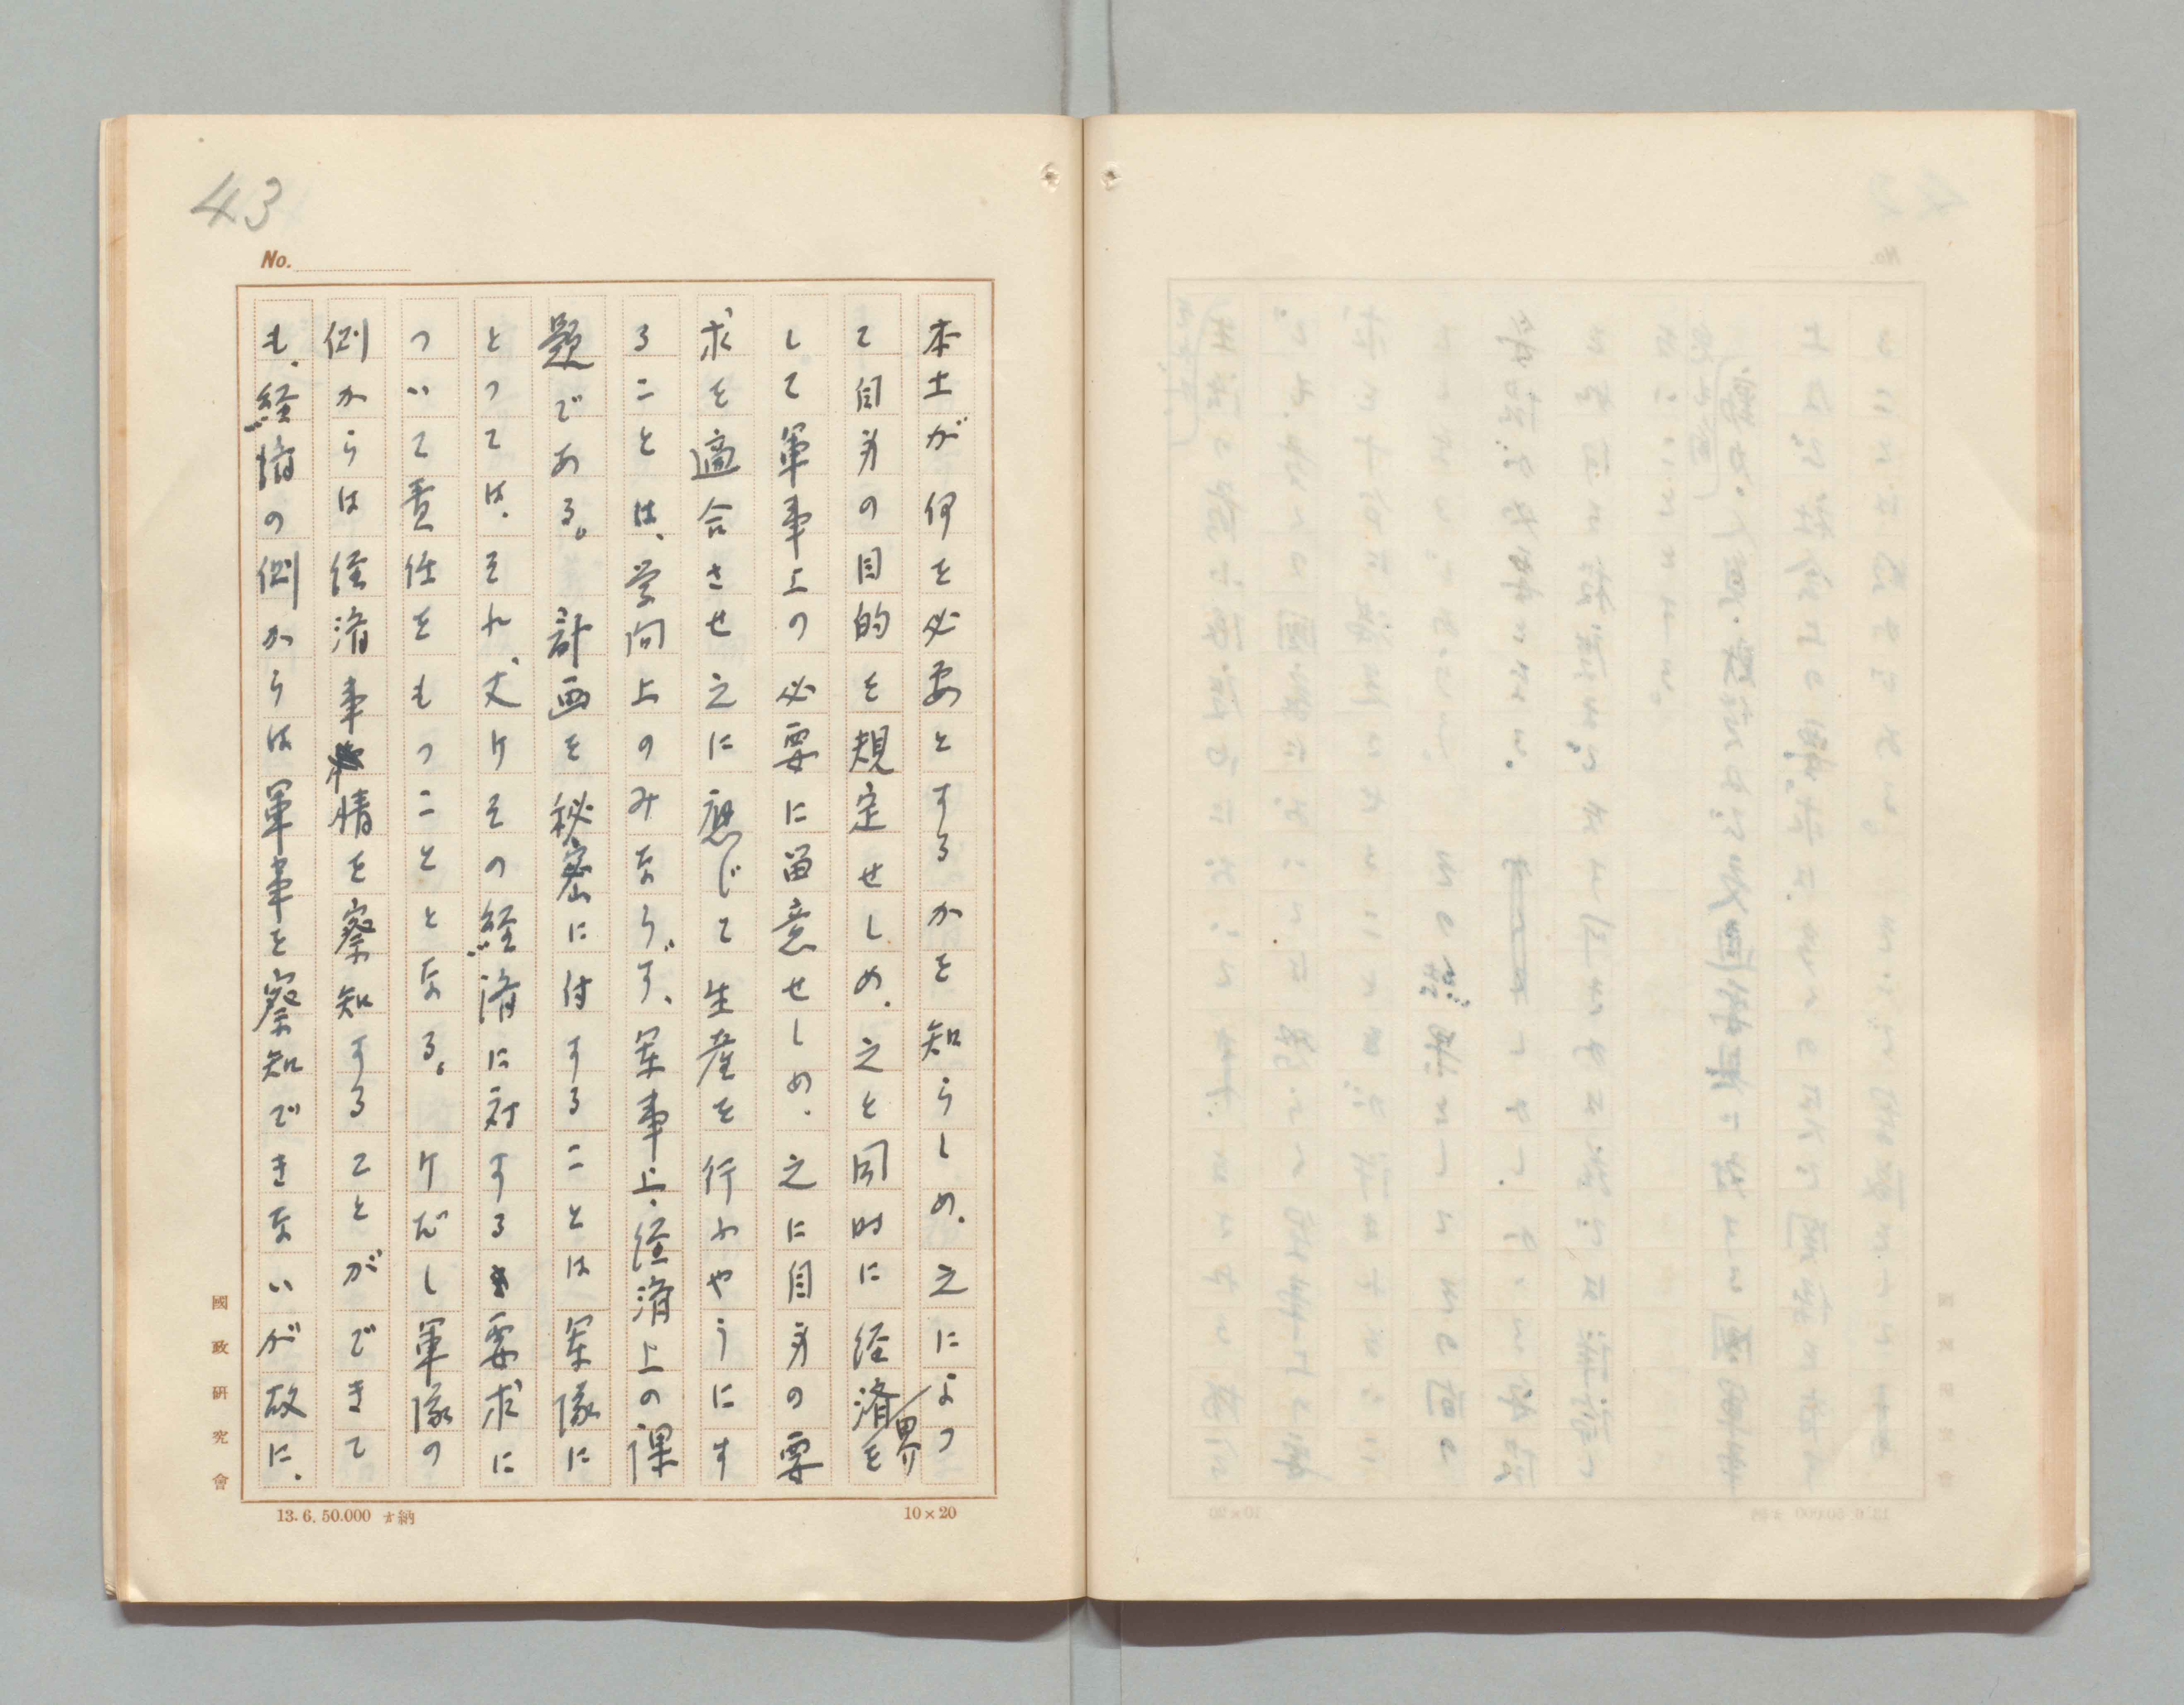 43
No.
本土が何を必要とするかを知らしめ、之によつ
て自身の目的を規定せしめ、之と同時に経済界を
して軍事上の必要に留意せしめ、之に自身の要
求を適合させ之に應じて生産を行ふやうにす
ることは、学問上のみならず、軍事上、経済上の課
題である。 計画を秘密に付することは軍隊に
とつては、それ丈けその経済に対する要求に
ついて責任をもつこととなる。けだし軍隊の
側からは経済事情を察知することができて
も、経済の側からは軍事を察知できないが故に、
國政研究會
13.6.50.000 納
10×20